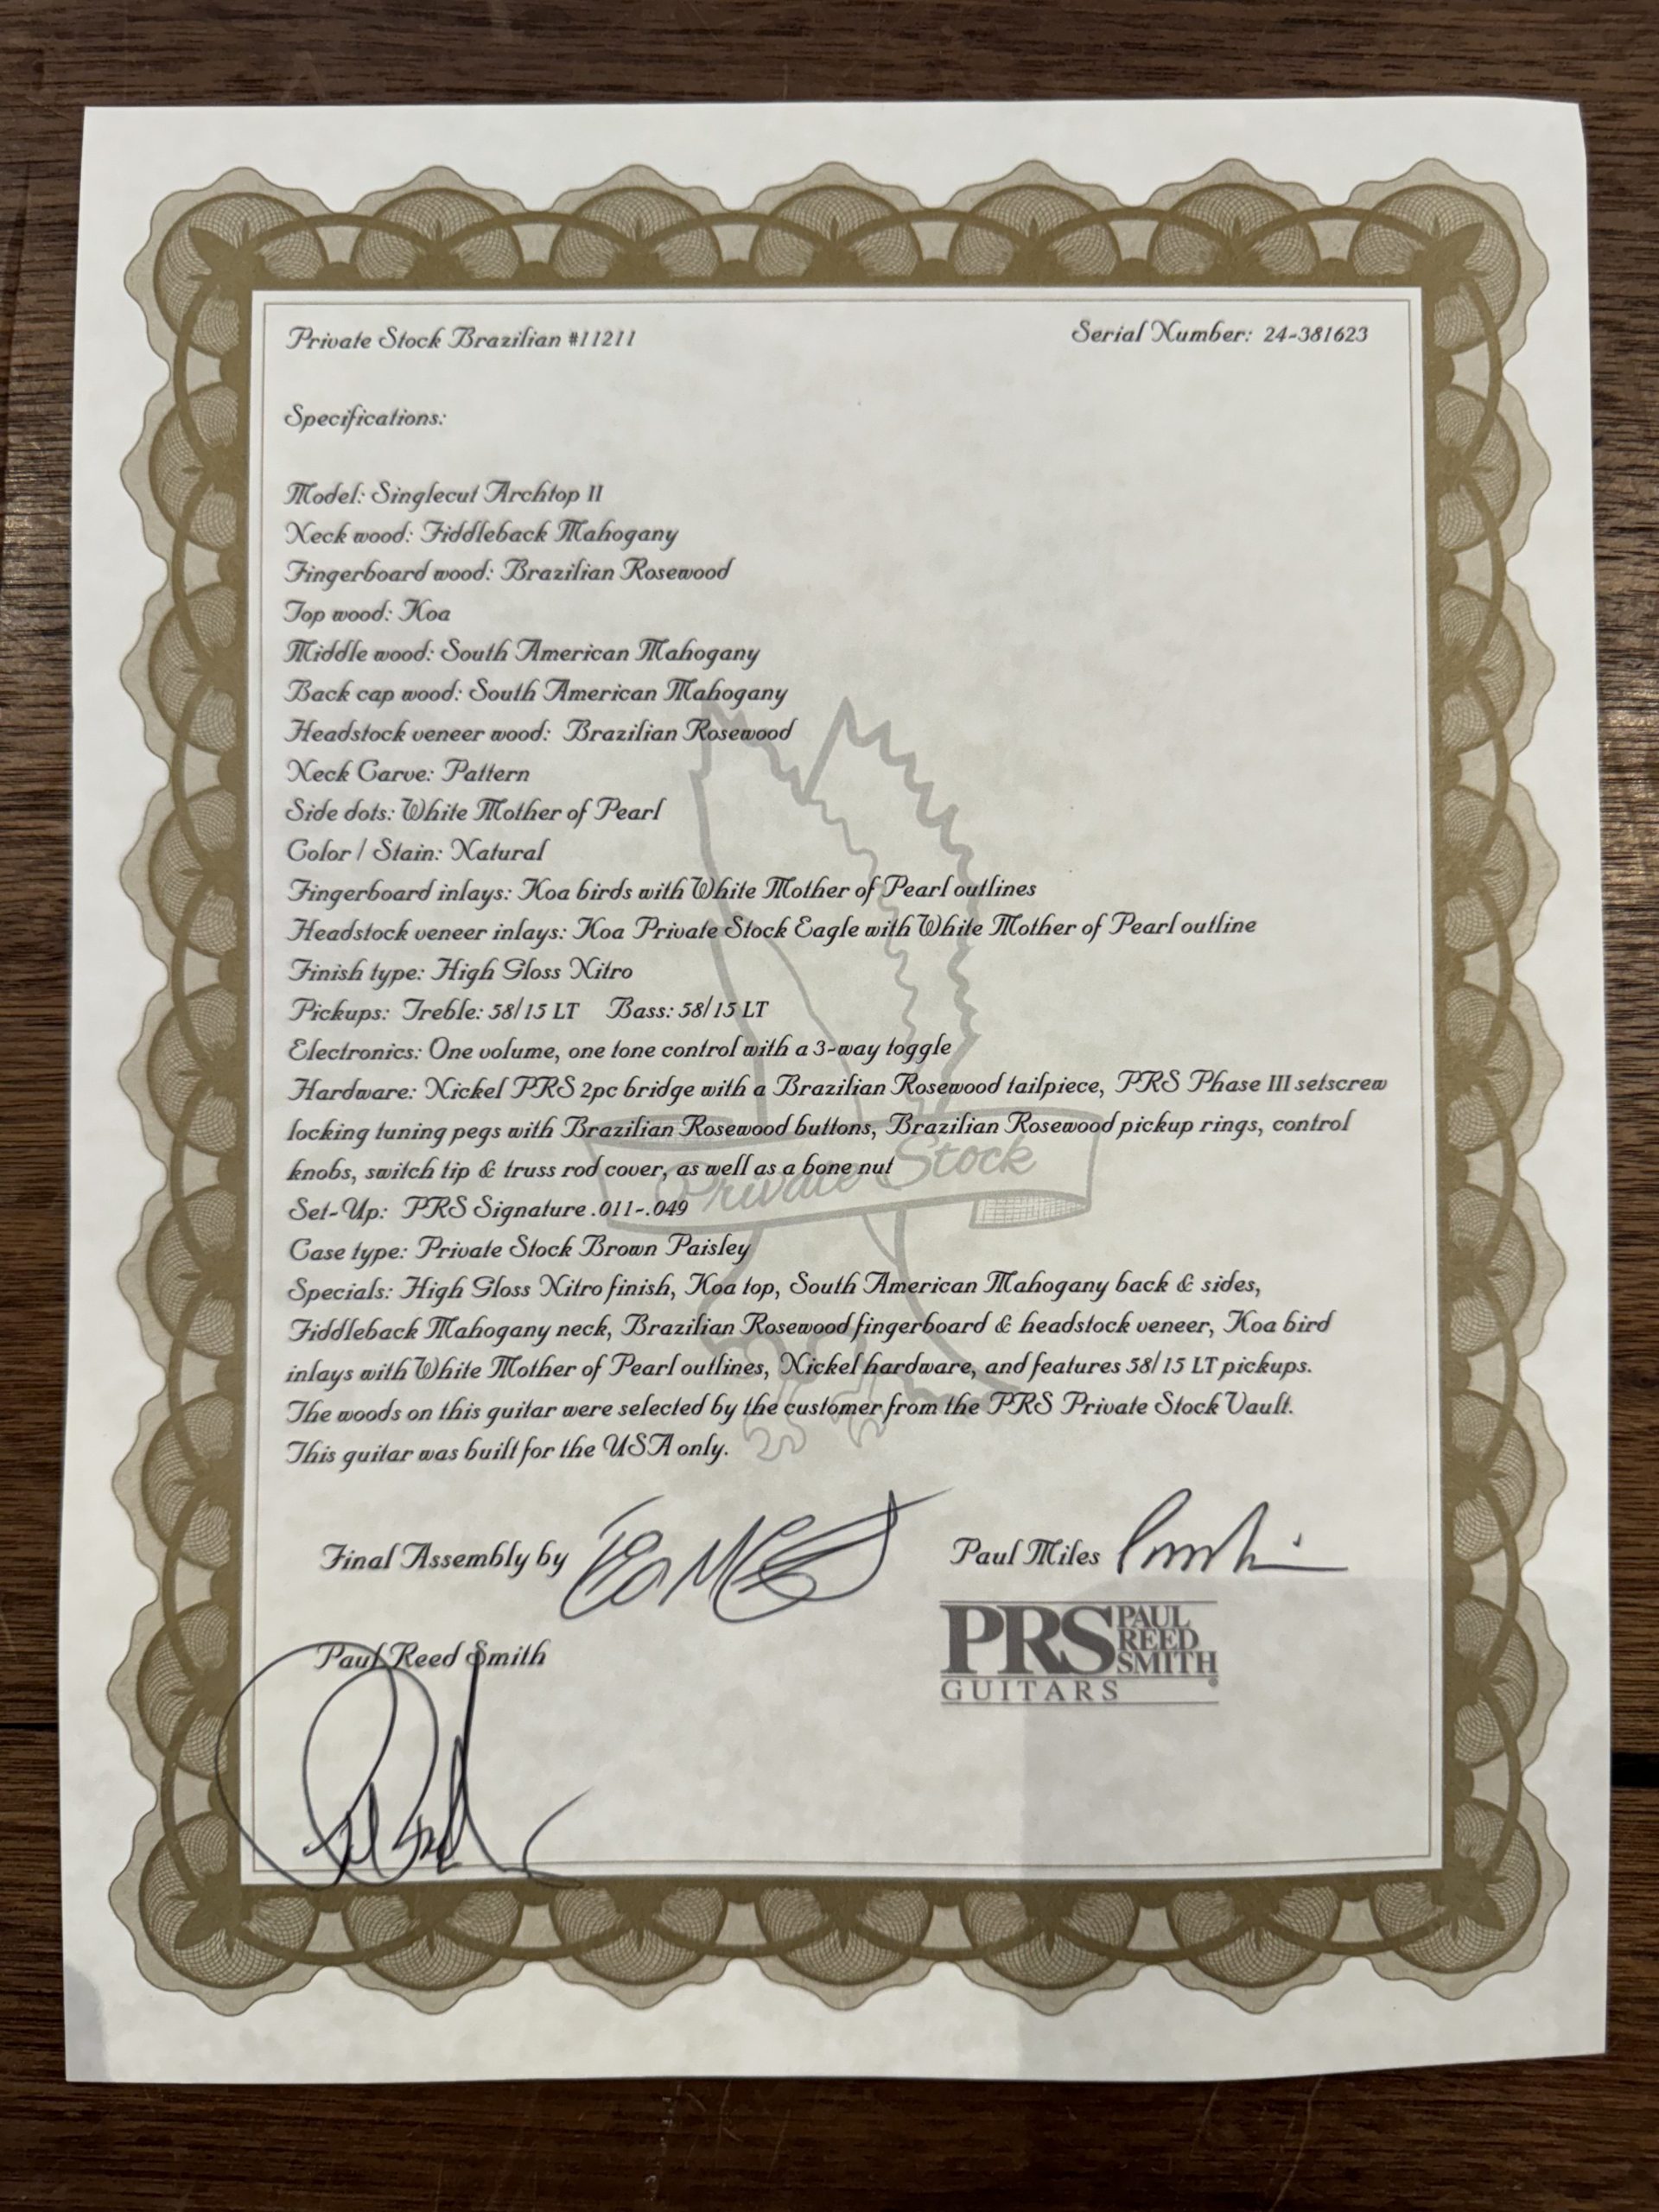 Private Stock Brazilian #11211
Serial Number: 24-381623
Specifications:
Model: Singlecut Archtop II
Neck wood: Fiddleback Mahogany
Fingerboard wood: Brazilian Rosewood
Top wood: Koa
Middle wood: South American Mahogany
Back cap wood: South American Mahogany
Headstock veneer wood: Brazilian Rosewood
Neck Carve: Pattern
Side dots: White Mother of Pearl
Color / Stain: Natural
Fingerboard inlays: Koa birds with White Mother of Pearl outlines
Headstock veneer inlays: Koa Private Stock Eagle with White Mother of Pearl outline
Finish type: High Gloss Nitro
Pickups: Treble: 58/15 LT Bass: 58/15 LT
Electronics: One volume, one tone control with a 3-way toggle
Hardware: Nickel PRS 2pc bridge with a Brazilian Rosewood tailpiece, PRS Phase III setscrew
locking tuning pegs with Brazilian Rosewood buttons, Brazilian Rosewood pickup rings, control
knobs, switch tip & truss rod cover, as well as a bone nut
Private Stock
Set-Up: PRS Signature .011-.049
Case type: Private Stock Brown Paisley
Specials: High Gloss Nitro finish, Koa top, South American Mahogany back & sides,
Fiddleback Mahogany neck, Brazilian Rosewood fingerboard & headstock veneer, Koa bird
inlays with White Mother of Pearl outlines, Nickel hardware, and features 58/15 LT pickups.
The woods on this guitar were selected by the customer from the PRS Private Stock Vault.
This guitar was built for the USA only.
Final Assembly by
Paul Miles
Paul Reed Smith
PRS PAUL REED SMITH
GUITARS